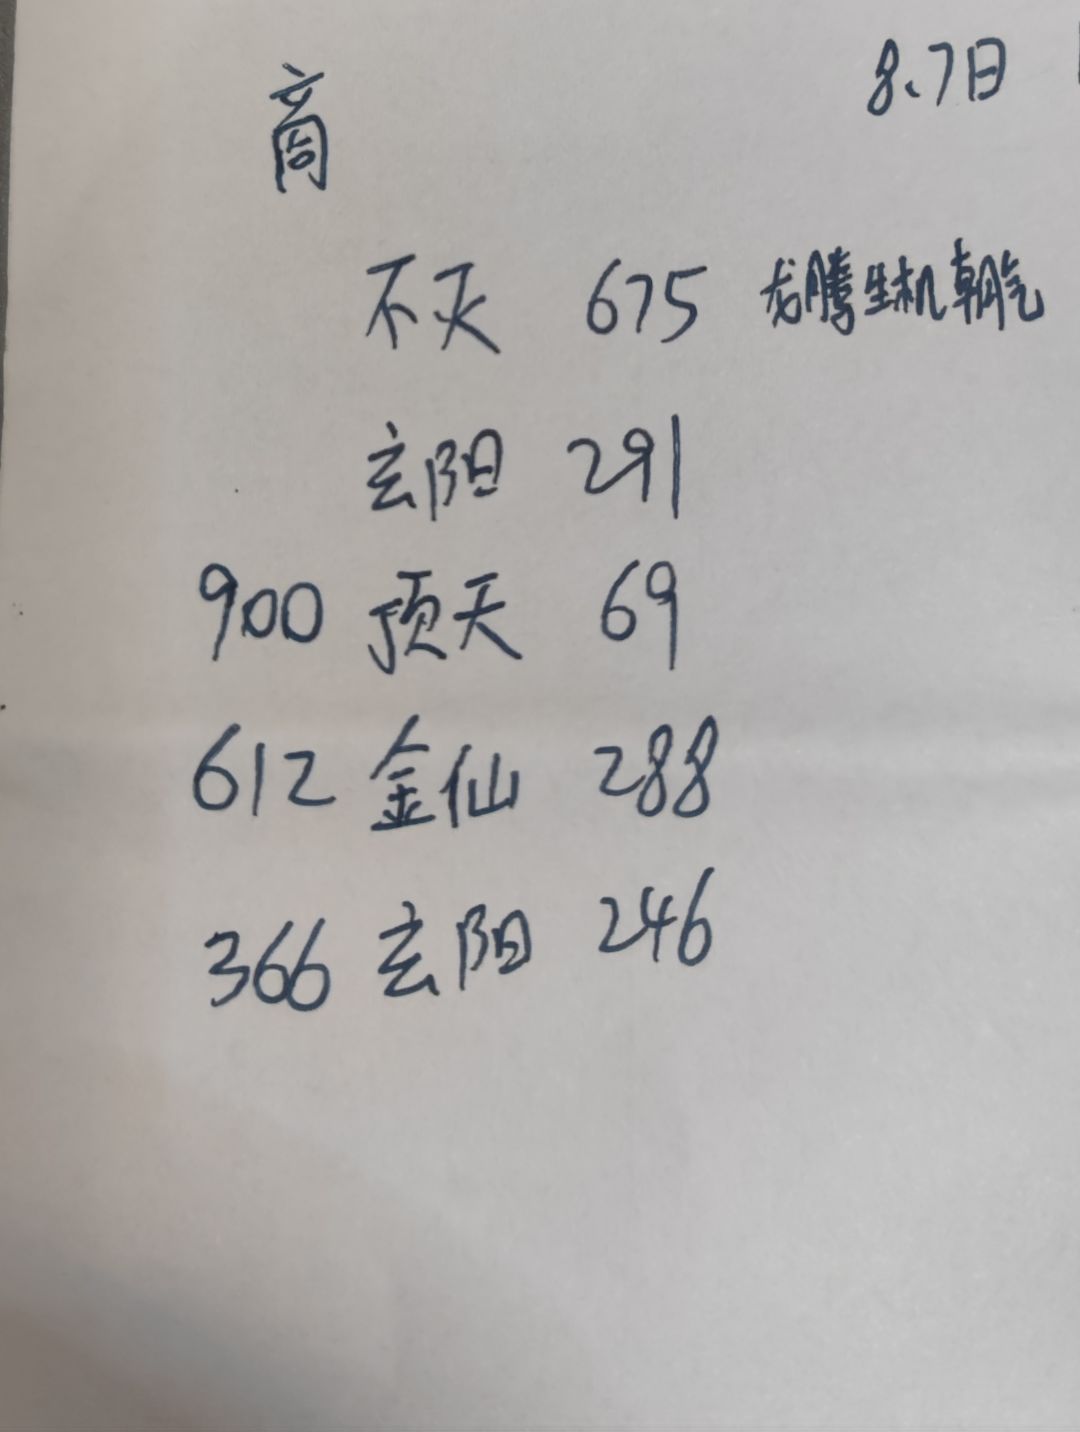 8、7日
商
不灭 675 龙腾生机朝气
玄阳 291
900 顶天 69
612 金仙 288
366 玄阳 246